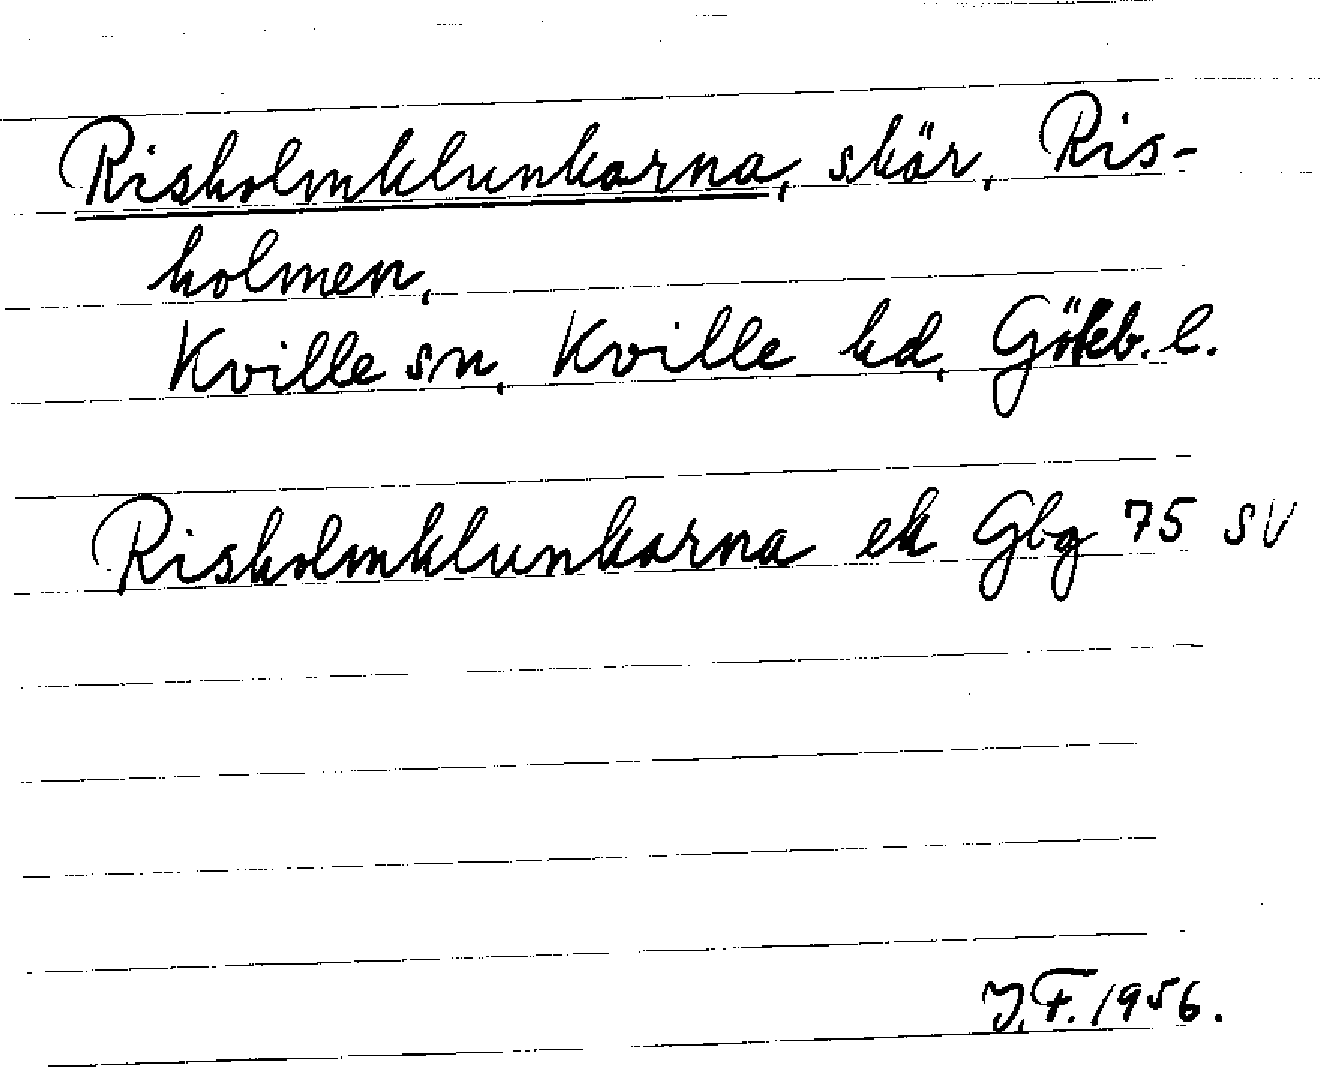 Risholmklunkarna, skär, Ris-
holmen,
Kville sn, Kville hd, Göteb. l.
Risholmklunkarna ek Gbg 75 SV
J.F. 1956.